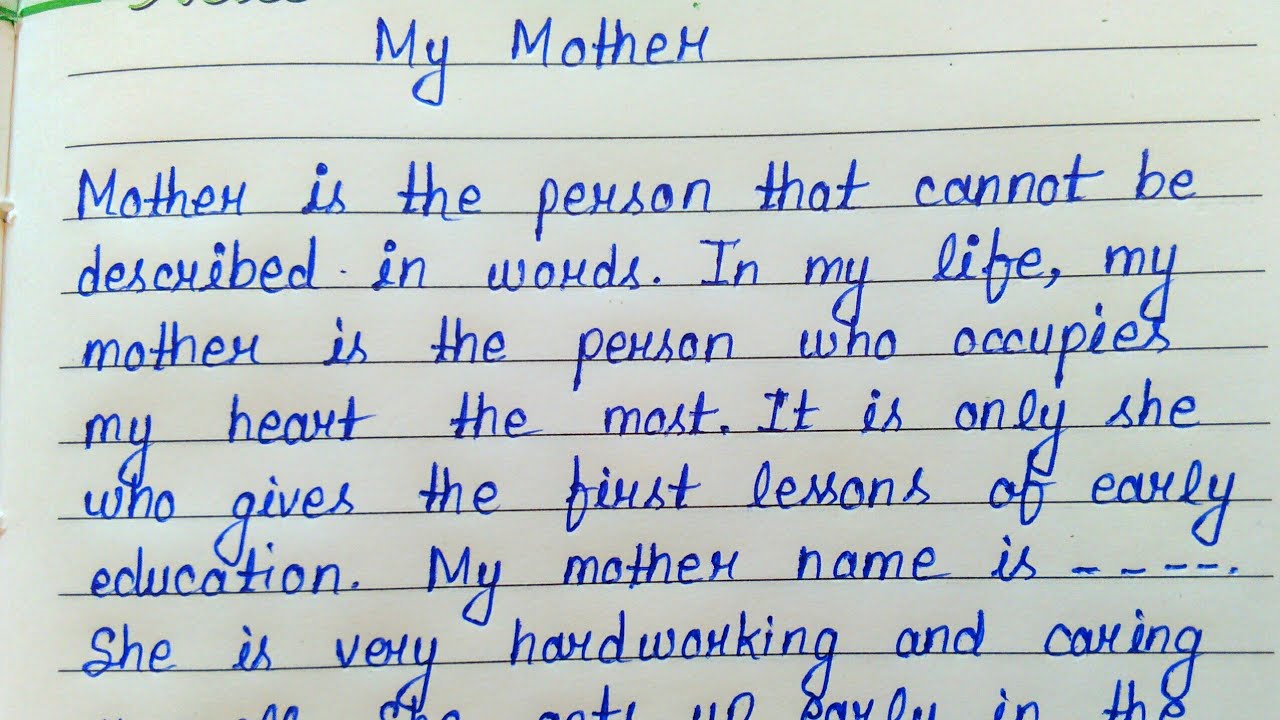 My Mother
Mother is the person that cannot be
described in words. In my life, my
mother is the person who occupies
my heart the most. It is only she
who gives the first lessons of early
education. My mother name is -----.
She is very hardworking and caring
up early in the